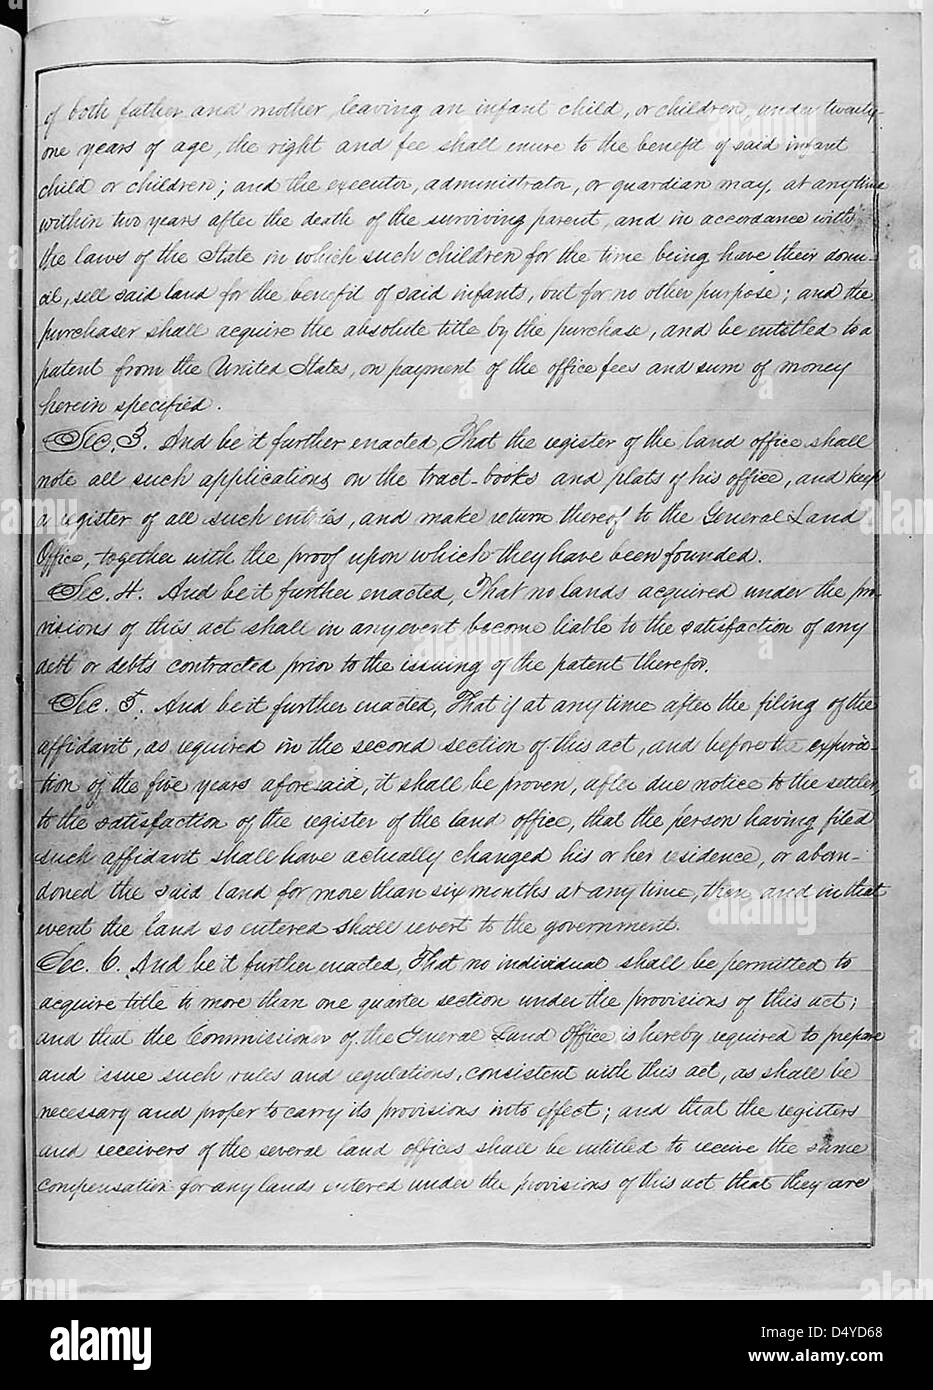 of both father and mother, leaving an infant child, or children, under twenty-
one years of age, the right and fee shall enure to the benefit of said infant
child or children; and the executor, administrator, or guardian may, at any time
within two years after the death of the surviving parent, and in accordance with
the laws of the State in which such children for the time being have their domi-
cil, sell said land for the benefit of said infants, but for no other purpose; and the
purchaser shall acquire the absolute title by the purchase, and be entitled to a
patent from the United States, on payment of the office fees and sum of money
herein specified.
Sec. 3. And be it further enacted, That the register of the land office shall
note all such applications on the tract-books and plats of his office, and keep
a register of all such entries, and make return thereof to the General Land
Office, together with the proof upon which they have been founded.
Sec. 4. And be it further enacted, That no lands acquired under the pro-
visions of this act shall in any event become liable to the satisfaction of any
debt or debts contracted prior to the issuing of the patent therefor.
Sec. 5. And be it further enacted, That if at any time after the filing of the
affidavit, as required in the second section of this act, and before the expira-
tion of the five years aforesaid, it shall be proven, after due notice to the settler,
to the satisfaction of the register of the land office, that the person having filed
such affidavit shall have actually changed his or her residence, or aban-
doned the said land for more than six months at any time, then and in that
event the land so entered shall revert to the government.
Sec. 6. And be it further enacted, That no individual shall be permitted to
acquire title to more than one quarter section under the provisions of this act;
and that the Commissioner of the General Land Office is hereby required to prepare
and issue such rules and regulations, consistent with this act, as shall be
necessary and proper to carry its provisions into effect; and that the registers
and receivers of the several land offices shall be entitled to receive the same
compensation for any lands entered under the provisions of this act that they are
alamy
Image ID: D4YD68
www.alamy.com